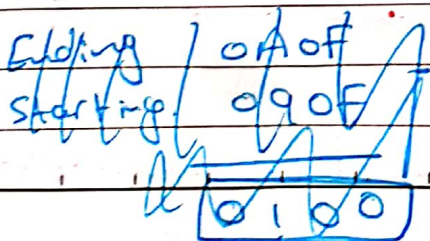 Ending 0A0F
Starting 090F
0100